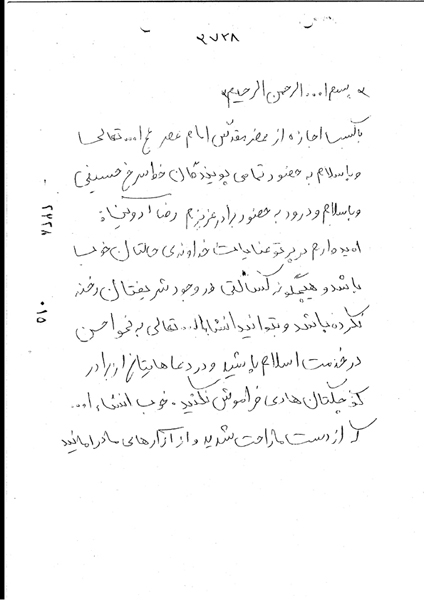 ۳۷۲۸
* بسم ا... الرحمن الرحیم *
با کسب اجازه از محضر مقدس امام عصر عج ا... تعالی
و با سلام به حضور تمامی پویندگان خط سرخ حسینی
و با سلام و درود به حضور برادر عزیزم رضا
امیدوارم در پرتو عنایات خداوندی حالتان خوب
باشد و هیچگونه کسالتی در وجود شریفتان رخنه
نکرده باشد و بتوانید انشاءا... تعالی به نحو احسن
در خدمت اسلام باشید و در دعاهایتان از برادر
کوچکتان هادی فراموش نکنید. خوب انشاء ا...
که از دست ما راحت شدید و از آزارهای ما در امانید
۰۱۵